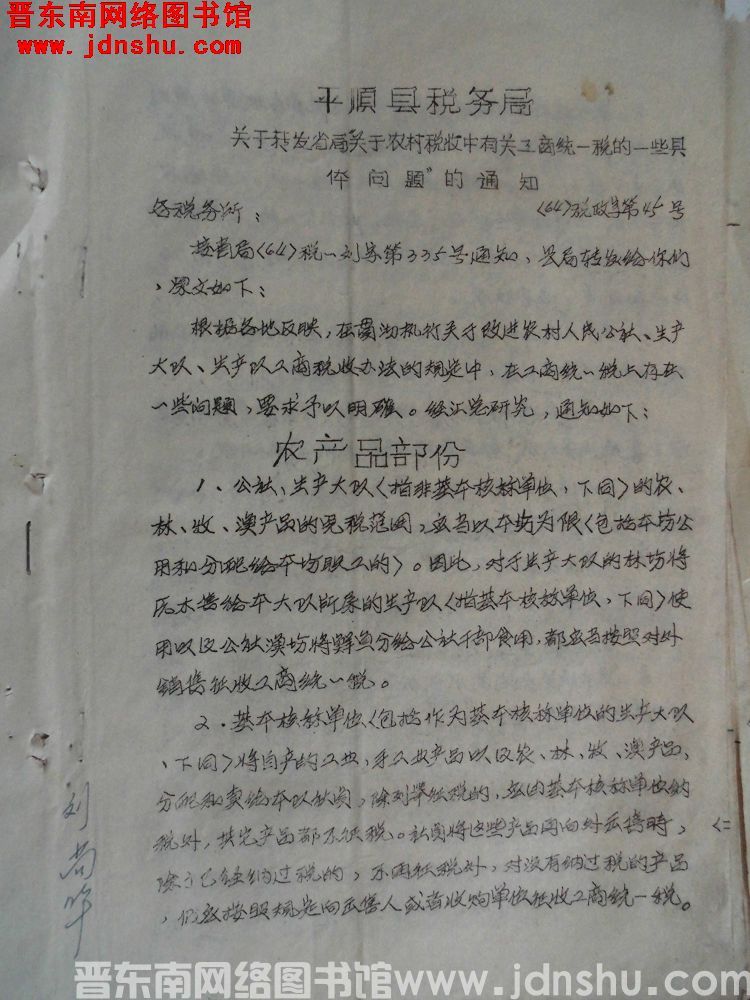 晋东南网络图书馆
www.jdnshu.com
平顺县税务局
关于转发省局“关于农村税收中有关工商统一税的一些具
体问题”的通知
各税务所： 〈64〉税政字第45号
接省局〈64〉税一刘字第335号通知，县局转发给你们
，原文如下：
根据各地反映，在贯彻执行关于改进农村人民公社、生产
大队、生产队工商税收办法的规定中，在工商统一税上存在
一些问题，要求予以明确。经汇总研究，通知如下：
农产品部份
1、公社、生产大队〈指非基本核算单位，下同〉的农、
林、牧、渔产品的免税范围，应当以本场为限〈包括本场公
用和分配给本场职工的〉。因此，对于生产大队的林场将
元木售给本大队所属的生产队〈指基本核算单位，下同〉使
用以及公社渔场将鲜鱼分给公社干部食用，都应当按照对外
销售征收工商统一税。
2．基本核算单位〈包括作为基本核算单位的生产大队
、下同〉将自产的工业，手工业产品以及农、林、牧、渔产品，
分配和卖给本队社员，除列举征税的，应由基本核算单位纳
税外，其它产品都不征税。社员将这些产品再向外出售时，
除了已经纳过税的，不再征税外，对没有纳过税的产品
，仍应按照规定向出售人或者收购单位征收工商统一税。
晋东南网络图书馆www.jdnshu.com